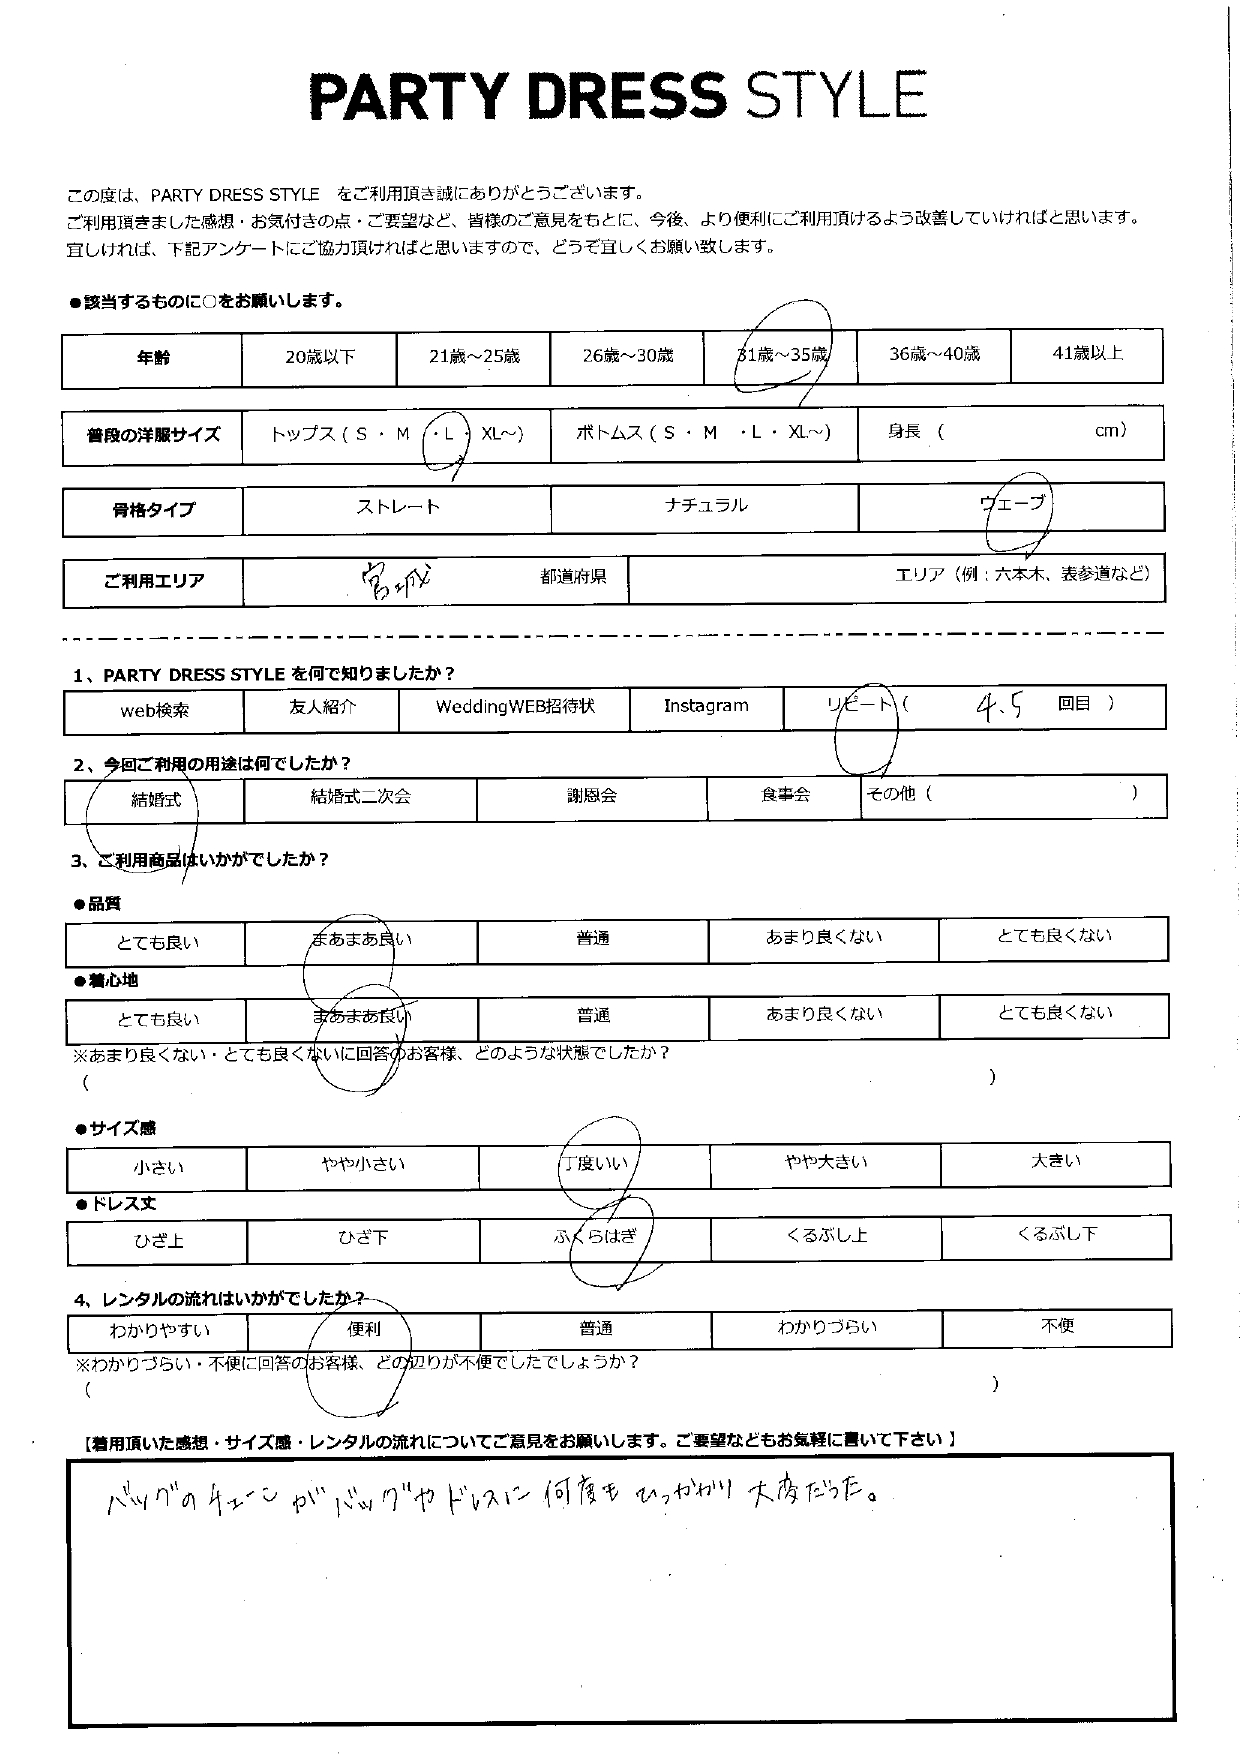 PARTY DRESS STYLE
この度は、PARTY DRESS STYLE をご利用頂き誠にありがとうございます。
ご利用頂きました感想・お気付きの点・ご要望など、皆様のご意見をもとに、今後、より便利にご利用頂けるよう改善していければと思います。
宜しければ、下記アンケートにご協力頂ければと思いますので、どうぞ宜しくお願い致します。
●該当するものに○をお願いします。
年齢 20歳以下 21歳～25歳 26歳～30歳 31歳～35歳 36歳～40歳 41歳以上
普段の洋服サイズ トップス ( S ・ M ・L ・ XL～) ボトムス ( S ・ M ・L ・ XL～) 身長 ( cm)
骨格タイプ ストレート ナチュラル ウェーブ
ご利用エリア 宮城 都道府県 エリア（例：六本木、表参道など）
1、PARTY DRESS STYLE を何で知りましたか？
web検索 友人紹介 WeddingWEB招待状 Instagram リピート ( 4.5 回目 )
2、今回ご利用の用途は何でしたか？
結婚式 結婚式二次会 謝恩会 食事会 その他 ( )
3、ご利用商品はいかがでしたか？
●品質
とても良い まあまあ良い 普通 あまり良くない とても良くない
●着心地
とても良い まあまあ良い 普通 あまり良くない とても良くない
※あまり良くない・とても良くないに回答のお客様、どのような状態でしたか？
( )
●サイズ感
小さい やや小さい 丁度いい やや大きい 大きい
●ドレス丈
ひざ上 ひざ下 ふくらはぎ くるぶし上 くるぶし下
4、レンタルの流れはいかがでしたか？
わかりやすい 便利 普通 わかりづらい 不便
※わかりづらい・不便に回答のお客様、どの辺りが不便でしたでしょうか？
( )
【着用頂いた感想・サイズ感・レンタルの流れについてご意見をお願いします。ご要望などもお気軽に書いて下さい】
バッグのチェーンがバッグやドレスに何度もひっかかり大変だった。